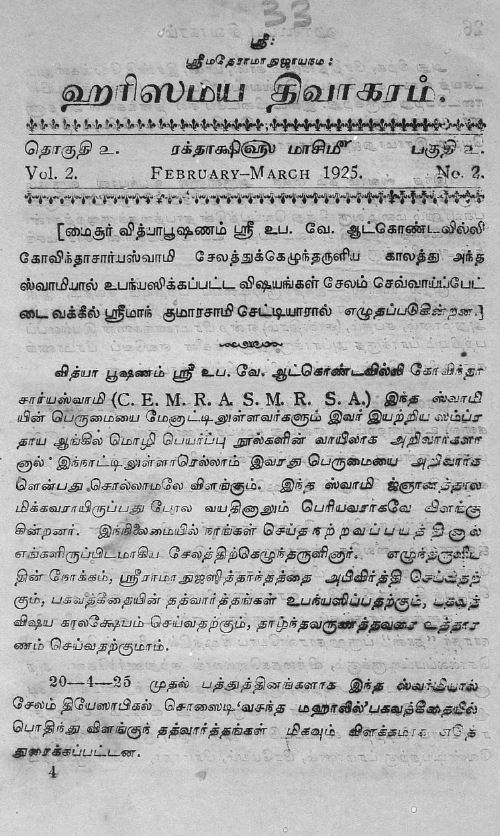 33
ஸ்ரீ:
ஸ்ரீமதேராமாநுஜாயநம:
ஹரிஸமய திவாகரம்.
தொகுதி உ. ரக்தாக்ஷிவரு மாசிமீ பகுதி உ.
Vol. 2. FEBRUARY—MARCH 1925. No. 2.
[மைசூர் வித்யாபூஷணம் ஸ்ரீ உப. வே. ஆட்கொண்டவில்லி
கோவிந்தாசார்யஸ்வாமி சேலத்துக்கெழுந்தருளிய காலத்து அந்த
ஸ்வாமியால் உபந்யஸிக்கப்பட்ட விஷயங்கள் சேலம் செவ்வாய்ப்பேட்
டை வக்கீல் ஸ்ரீமாந் குமாரசாமி செட்டியாரால் எழுதப்படுகின்றன.]
வித்யா பூஷணம் ஸ்ரீ உப. வே. ஆட்கொண்டவில்லி கோவிந்தா
சார்யஸ்வாமி (C. E. M. R. A. S. M. R. S. A.) இந்த ஸ்வாமி
யின் பெருமையை மேனாட்டிலுள்ளவர்களும் இவர் இயற்றிய ஸம்ப்ர
தாய ஆங்கில மொழி பெயர்ப்பு நூல்களின் வாயிலாக அறிவார்களா
னால் இந்நாட்டிலுள்ளாரெல்லாம் இவரது பெருமையை அறிவார்க
ளென்பது சொல்லாமலே விளங்கும். இந்த ஸ்வாமி ஜ்ஞானத்தால்
மிக்கவராயிருப்பது போல வயதினாலும் பெரியவராகவே விளங்கு
கின்றனர். இந்நிலைமையில் நாங்கள் செய்த நற்றவப்பயத்தினால்
எங்களிருப்பிடமாகிய சேலத்திற்கெழுந்தருளினார். எழுந்தருளிய
தின் நோக்கம், ஸ்ரீராமாநுஜஸித்தாந்தத்தை அபிவிர்த்தி செய்வதற்
கும், பகவத்கீதையின் தத்வார்த்தங்கள் உபந்யஸிப்பதற்கும், பகவத்
விஷய காலக்ஷேபம் செய்வதற்கும், தாழ்ந்தவருணத்தவரை உத்தார
ணம் செய்வதற்குமாம்.
20—4—25 முதல் பத்துத்தினங்களாக இந்த ஸ்வாமியால்
சேலம் தியேஸாபிகல் சொஸைடி வசந்த மஹாலில் பகவத்கீதையில்
பொதிந்து விளங்குந் தத்வார்த்தங்கள் மிகவும் விளக்தமாக எடுத்
துரைக்கப்பட்டன.
4